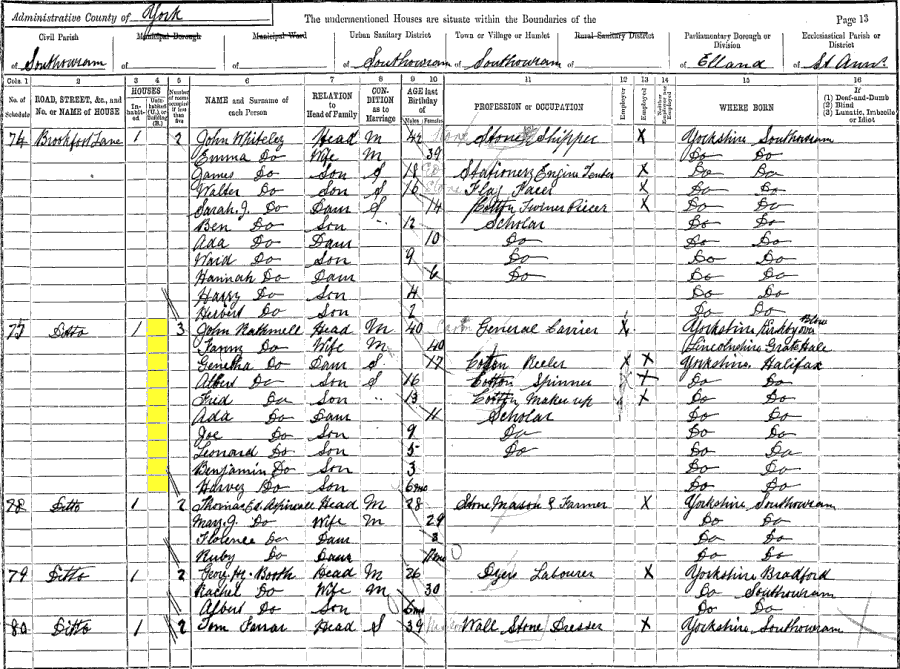 Administrative County of York The undermentioned Houses are situate within the Boundaries of the Page 13
Civil Parish Municipal Borough Municipal Ward Urban Sanitary District Town or Village or Hamlet Rural Sanitary District Parliamentary Borough or Division Ecclesiastical Parish or District
of Southowram of of of Southowram of Southowram of of Elland of St Anns
Cols. 1 2 3 4 5 6 7 8 9 10 11 12 13 14 15 16
No. of Schedule ROAD, STREET, &c., and No. or NAME of HOUSE HOUSES Inhabited Uninhabited (U.), or Building (B.) Number of rooms occupied if less than five NAME and Surname of each Person RELATION to Head of Family CONDITION as to Marriage AGE last Birthday of Males Females PROFESSION or OCCUPATION Employer Employed Neither WHERE BORN (1) Deaf-and-Dumb (2) Blind (3) Lunatic, Imbecile or Idiot
74 Brookfoot Lane 1 2 John Whiteley Head M 42 Stone Shipper X Yorkshire Southowram
Emma Do Wife M 39 Do Do
James Do Son S 18 Stationery Engine Tenter X Do Do
Walter Do Son S 16 Flag Facer X Do Do
Sarah. J. Do Daur S 14 Cotton Twiner Piecer X Do Do
Ben Do Son 12 Scholar Do Do
Ada Do Daur 10 Do Do Do
Waid Do Son 9 Do Do Do
Hannah Do Daur 6 Do Do Do
Harry Do Son 4 Do Do
Herbert Do Son 2 Do Do
Ditto 1 3 John Head M 40 General Carrier X Yorkshire Kirkby over Blow
Fanny Do Wife M 40 Lincolnshire Grate Hale
Do Daur S 17 Cotton Reeler X X Yorkshire. Halifax
Albert Do Son S 16 Cotton Spinner X Do Do
Fred Do Son 13 Cotton Maker up X Do Do
Ada Do Daur 11 Scholar Do Do
Joe Do Son 9 Do Do Do
Leonard Do Son 5 Do Do Do
Benjamin Do Son 3 Do Do
Harvey Do Son 6mo Do Do
78 Ditto 1 2 Thomas Ed. Aspinall Head M 28 Stone Mason & Farmer X Yorkshire Southowram
Mary. J. Do Wife M 29 Do Do
Florence Do Daur 3 Do Do
Ruby Do Daur 11mo Do Do
79 Ditto 1 2 Geor. Hy. Booth Head M 26 Dyers Labourer X Yorkshire Bradford
Rachel Do Wife M 30 Do Southowram
Albert Do Son 6mo Do Do
80 Ditto 1 2 Tom Farrar Head S 39 Wall Stone Dresser X Yorkshire Southowram